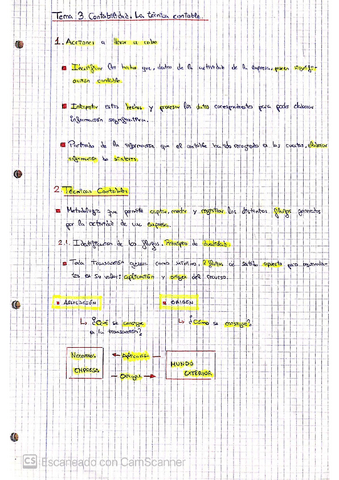 Tema 3. Contabilidad. La técnica contable.
1. Acciones a llevar a cabo
Identificar los hechos que, dentro de la actividad de la empresa, poseen signifi-
cación contable.
Interpretar estos hechos y procesar los datos correspondientes para poder elaborar
información significativa.
Partiendo de la información que el contable ha ido recogiendo en las cuentas, elaborar
información de síntesis.
2. Técnicas Contables.
Metodología que permite captar, medir y registrar los distintos flujos generados
por la actividad de una empresa.
2.1. Identificación de los flujos. Principio de dualidad.
Toda transacción genera como mínimo, 2 flujos en sentido opuesto pero equivalen-
tes en su valor: aplicación y origen del recurso.
APLICACIÓN ORIGEN
¿Qué se consigue ¿Cómo se consigue?
en la transacción?
Nosotros Aplicación MUNDO
EMPRESA Origen EXTERIOR
CS Escaneado con CamScanner